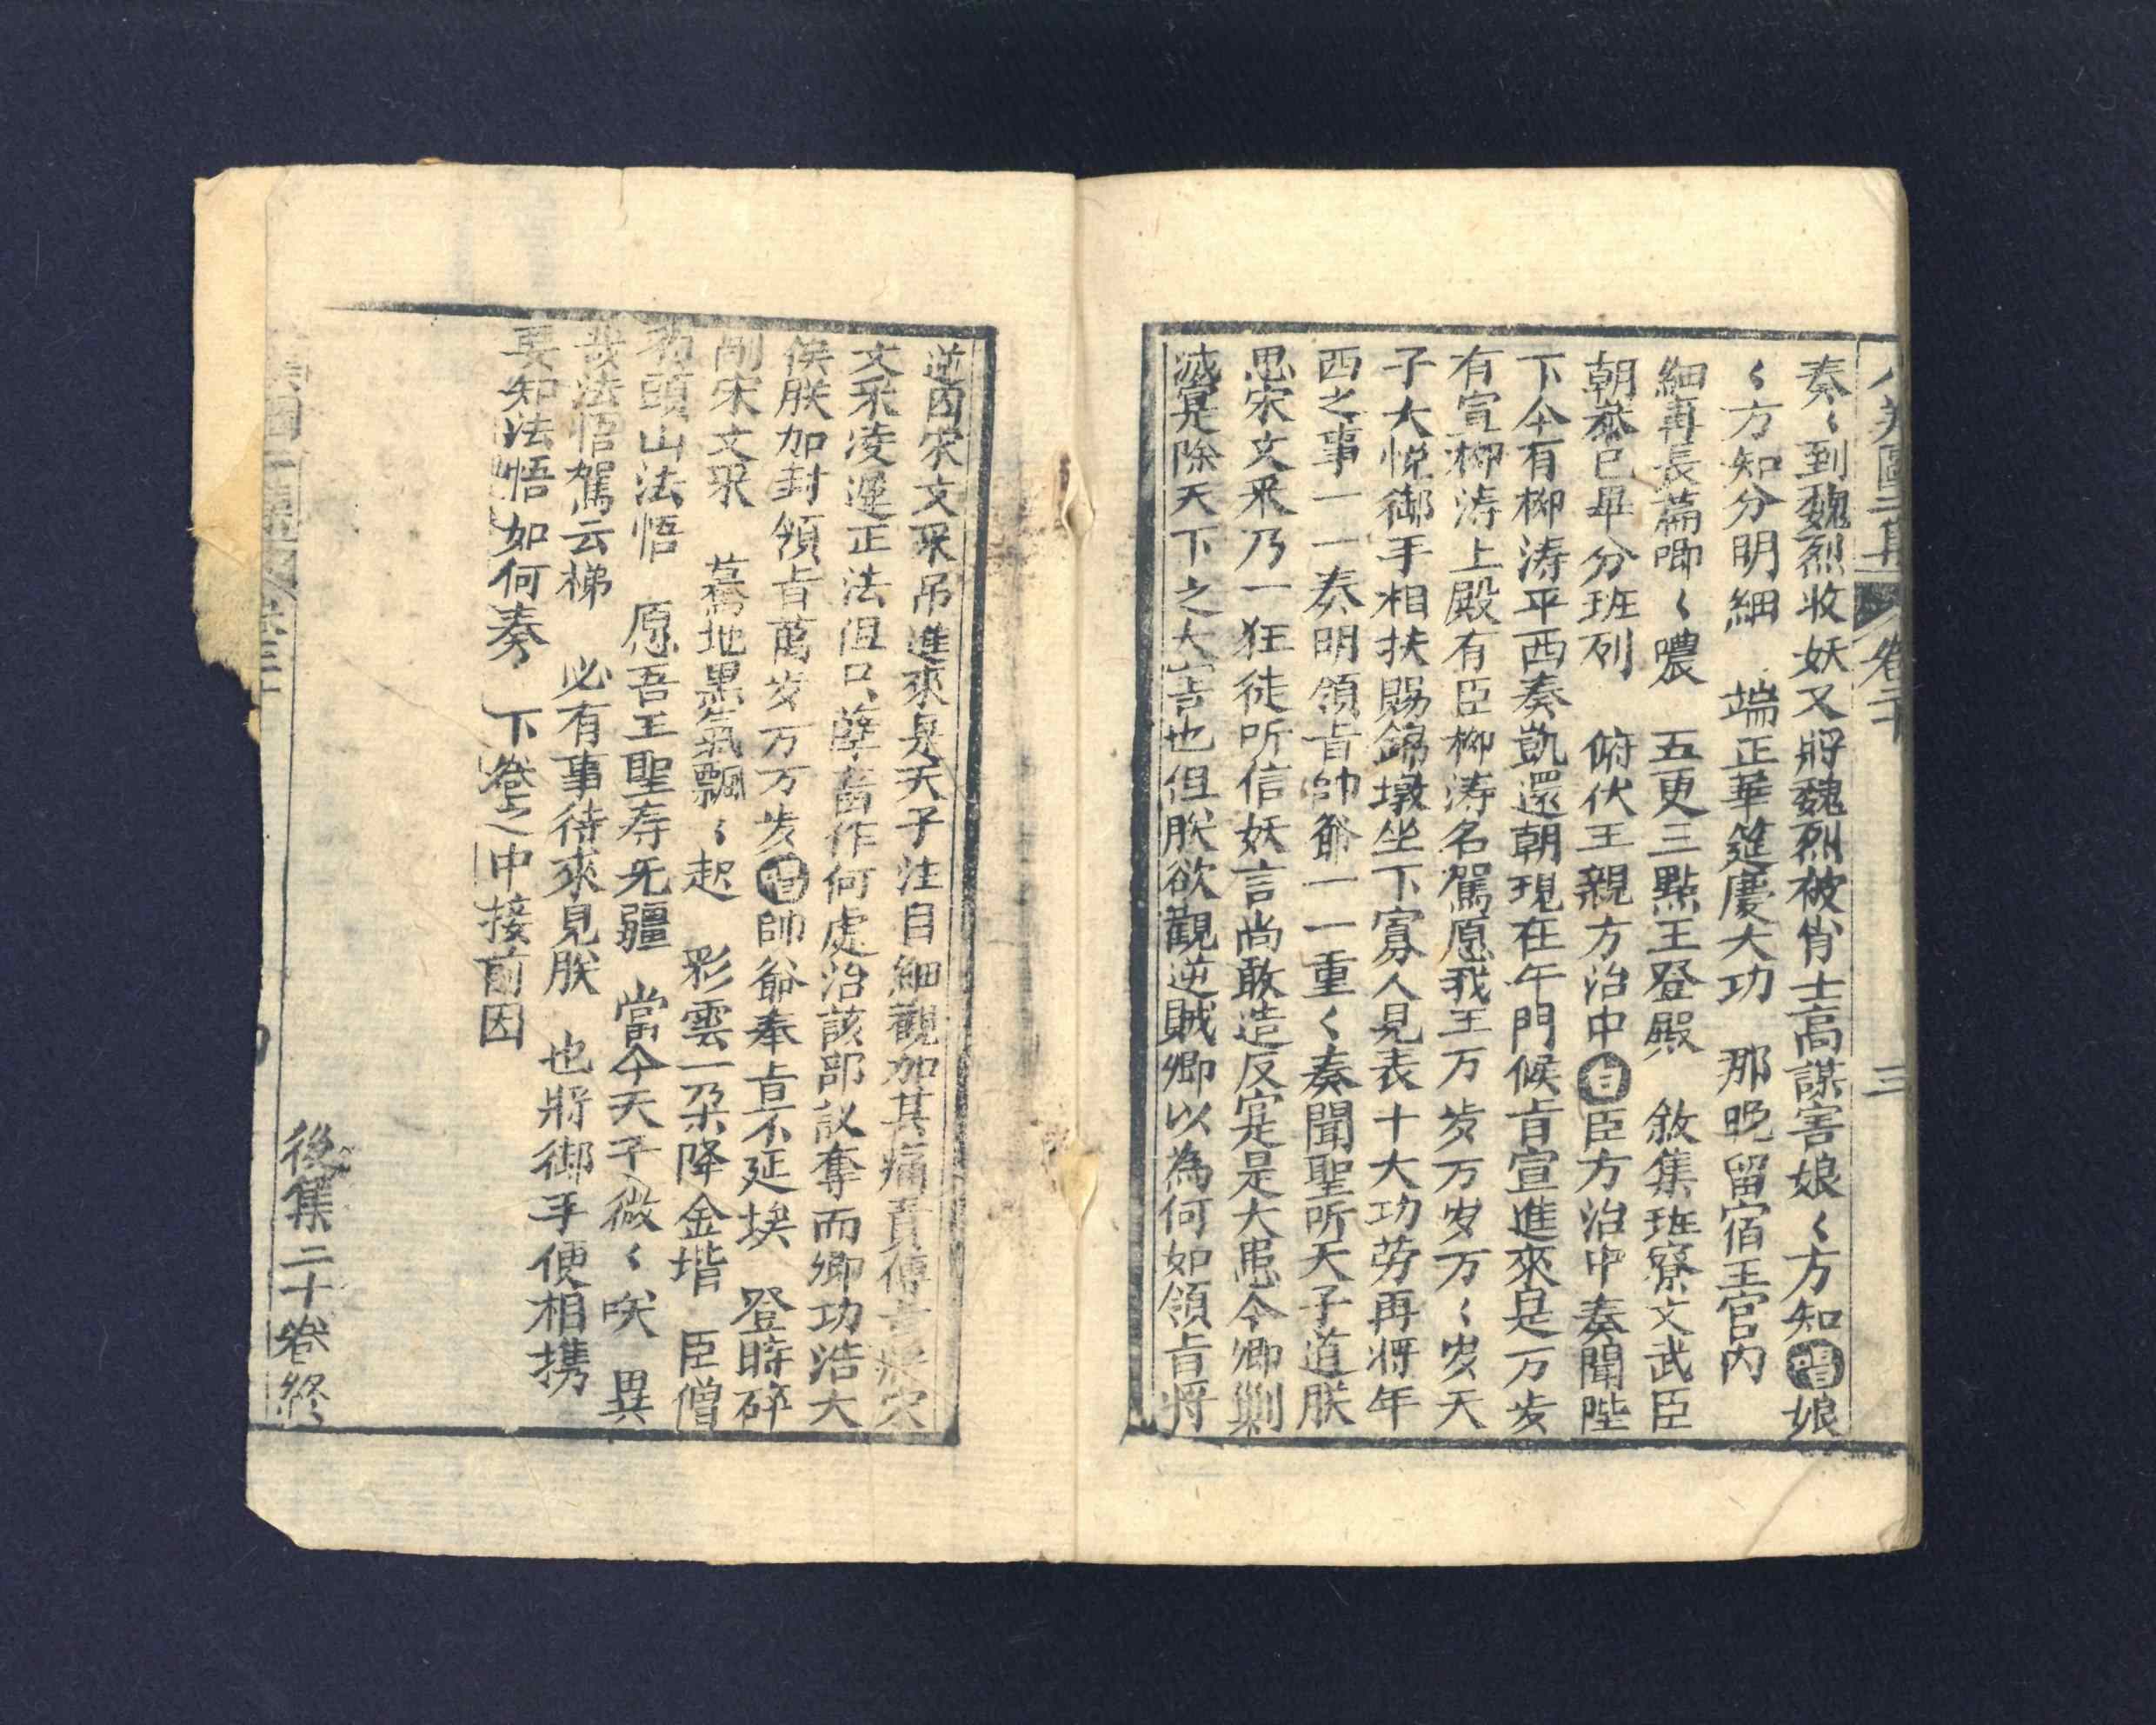 美圖二集 卷二十 三
奏〻到魏烈收妖又將魏烈被肖士高謀害娘〻方知唱娘
〻方知分明細 端正華筵慶大功 那晚留宿王宫内
細再長篇唧〻噥 五更三點王登殿 敘集班寮文武臣
朝叅已畢分班列 俯伏王親方治中白臣方治中奏聞陛
下今有柳涛平西奏凱還朝現在午門候㫖宣進來是万岁
有宣柳涛上殿有臣柳涛名駕愿我王万岁万岁万〻岁天
子大悦御手相扶賜錦墩坐下寡人見表十大功劳再將年
西之事一一奏明領㫖帥爺一一重〻奏聞聖听天子道朕
思宋文采乃一狂徒听信妖言尚敢造反寔是大患今卿剿
滅寔除天下之大害也但朕欲觀逆賊卿以為何如領㫖將
逆囚宋文采吊進來是天子注目細觀加其痛責傳㫖將宋
文采凌遲正法但口孽畜作何處治該部議奪而卿功浩大
侯朕加封領㫖萬岁万万岁唱帥爺奉㫖不延挨 登時碎
剮宋文采 驀地黑氣飄〻起 彩雲一朶降金堦 臣僧
頭山法悟 愿吾王聖寿无疆 當今天子微〻咲 異
哉法悟駕云梯 必有事待來見朕 也將御手便相携
要知法悟如何奏 下卷之中接前因
後集二十卷終